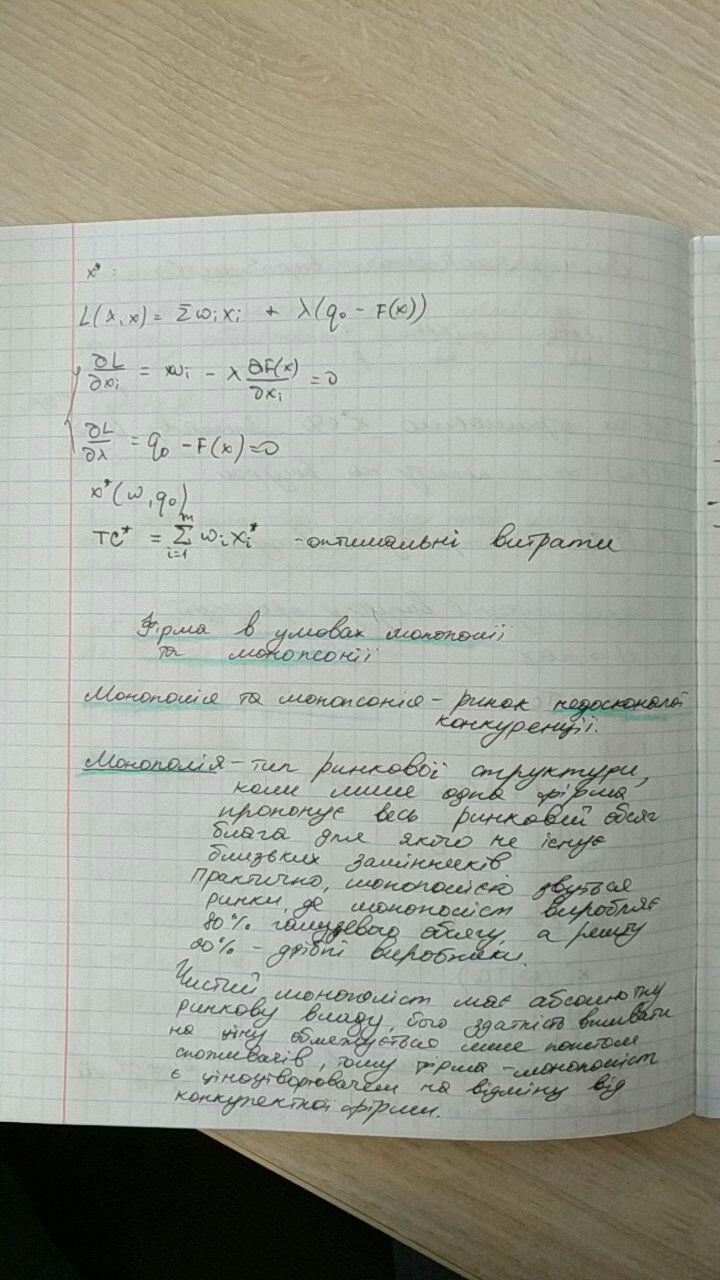 x* :
L(λ, x) = Σ wᵢxᵢ + λ(q₀ - F(x))
∂L/∂xᵢ = wᵢ - λ ∂F(x)/∂xᵢ = 0
∂L/∂λ = q₀ - F(x) = 0
x*(w, q₀)
TC* = Σᵢ₌₁ᵐ wᵢxᵢ* - оптимальні витрати
Фірма в умовах монополії
та монопсонії
Монополія та монопсонія - ринок недосконалої
конкуренції.
Монополія - тип ринкової структури,
коли лише одна фірма
пропонує весь ринковий обсяг
блага для якого не існує
близьких замінників
Практично, монополією звуться
ринки, де монополіст виробляє
80% галузевого обсягу, а решту
20% - дрібні виробники.
Чистий монополіст має абсолютну
ринкову владу, його здатність впливати
на ціну обмежується лише попитом
споживачів, тому фірма-монополіст
є ціноутворювачем на відміну від
конкурентної фірми.